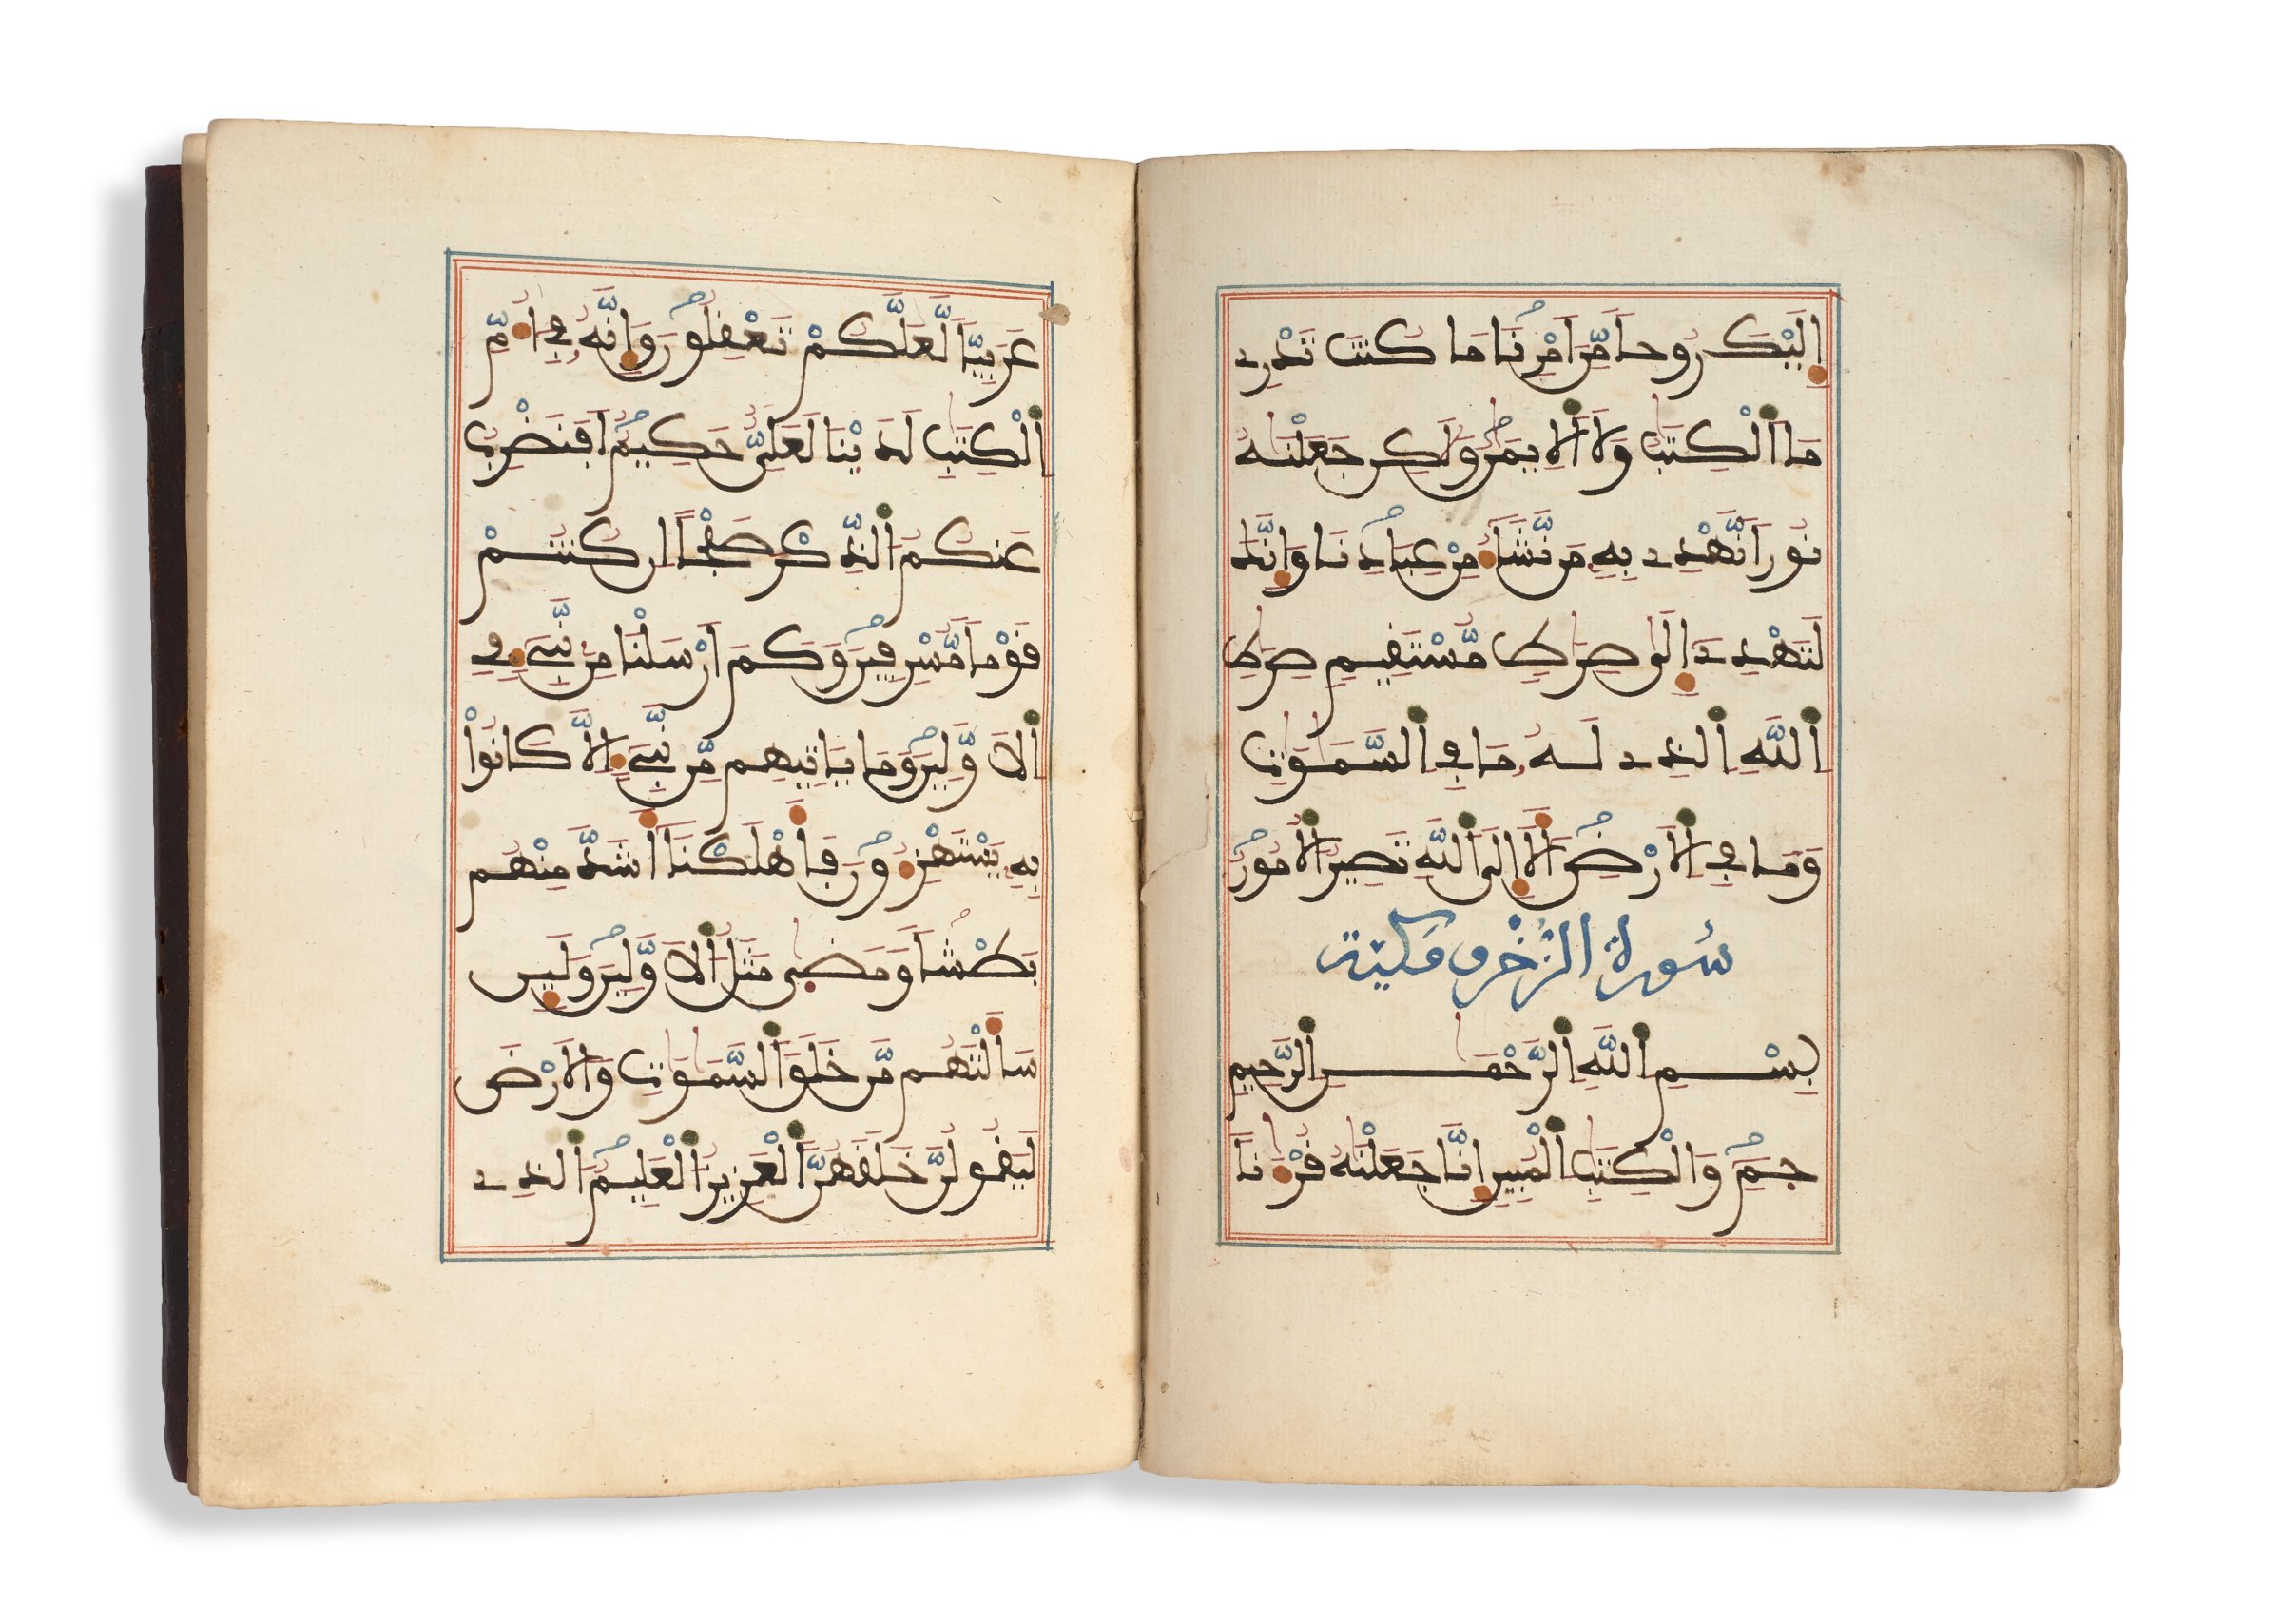 إِلَيْكَ رُوحاً مِّنَ اَمْرِنَا مَا كُنتَ تَدْرِے
مَا اَ۬لْكِتَٰبُ وَلَا اَ۬لِايمَٰنُ وَلَٰكِن جَعَلْنَٰهُ
نُوراً نَّهْدِے بِهِۦ مَن نَّشَآءُ مِنْ عِبَادِنَا وَإِنَّكَ
لَتَهْدِےٓ إِلَىٰ صِرَٰطٖ مُّسْتَقِيمٖ صِرَٰطِ
اِ۬للَّهِ اِ۬لذِے لَهُۥ مَا فِے اِ۬لسَّمَٰوَٰتِ
وَمَا فِے اِ۬لَارْضِ أَلَآ إِلَى اَ۬للَّهِ تَصِيرُ اُ۬لُامُورُ
سُورة الزُّخْرف مَكيّة
بِسْمِ اِ۬للَّهِ اِ۬لرَّحْمَٰنِ اِ۬لرَّحِيمِ
حٓمِٓ وَالْكِتَٰبِ اِ۬لْمُبِينِ إِنَّا جَعَلْنَٰهُ قُرْءَٰناً
عَرَبِيّاً لَّعَلَّكُمْ تَعْقِلُونَ وَإِنَّهُۥ فِےٓ أُمِّ
اِ۬لْكِتَٰبِ لَدَيْنَا لَعَلِيٌّ حَكِيمٌ اَفَنَضْرِبُ
عَنكُمُ اُ۬لذِّكْرَ صَفْحاً اِن كُنتُمْ
قَوْماً مُّسْرِفِينَ وَكَمَ اَرْسَلْنَا مِن نَّبِےٓءٖ فِے
اِ۬لَاوَّلِينَ وَمَا يَاتِيهِم مِّن نَّبِےٓءٍ اِلَّا كَانُواْ
بِهِۦ يَسْتَهْزِءُونَ فَأَهْلَكْنَآ أَشَدَّ مِنْهُم
بَطْشاً وَمَضَىٰ مَثَلُ اُ۬لَاوَّلِينَ وَلَئِن
سَأَلْتَهُم مَّنْ خَلَقَ اَ۬لسَّمَٰوَٰتِ وَالَارْضَ
لَيَقُولُنَّ خَلَقَهُنَّ اَ۬لْعَزِيزُ اُ۬لْعَلِيمُ اُ۬لذِے